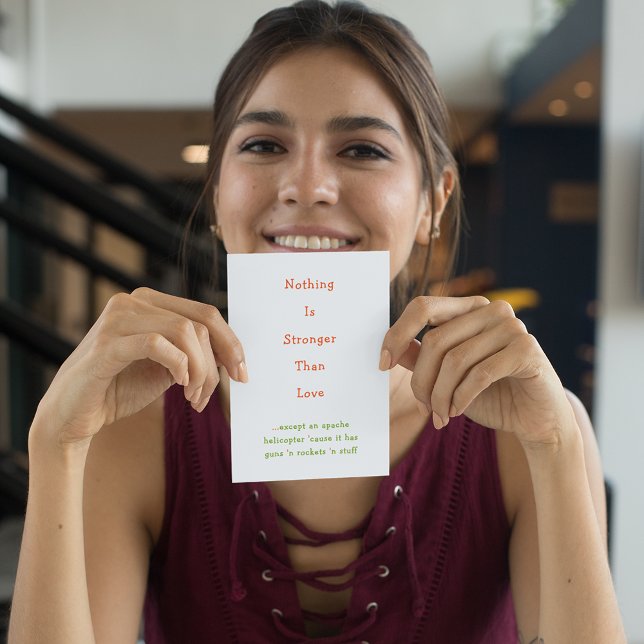 Nothing
Is
Stronger
Than
Love
...except an apache
helicopter 'cause it has
guns 'n rockets 'n stuff